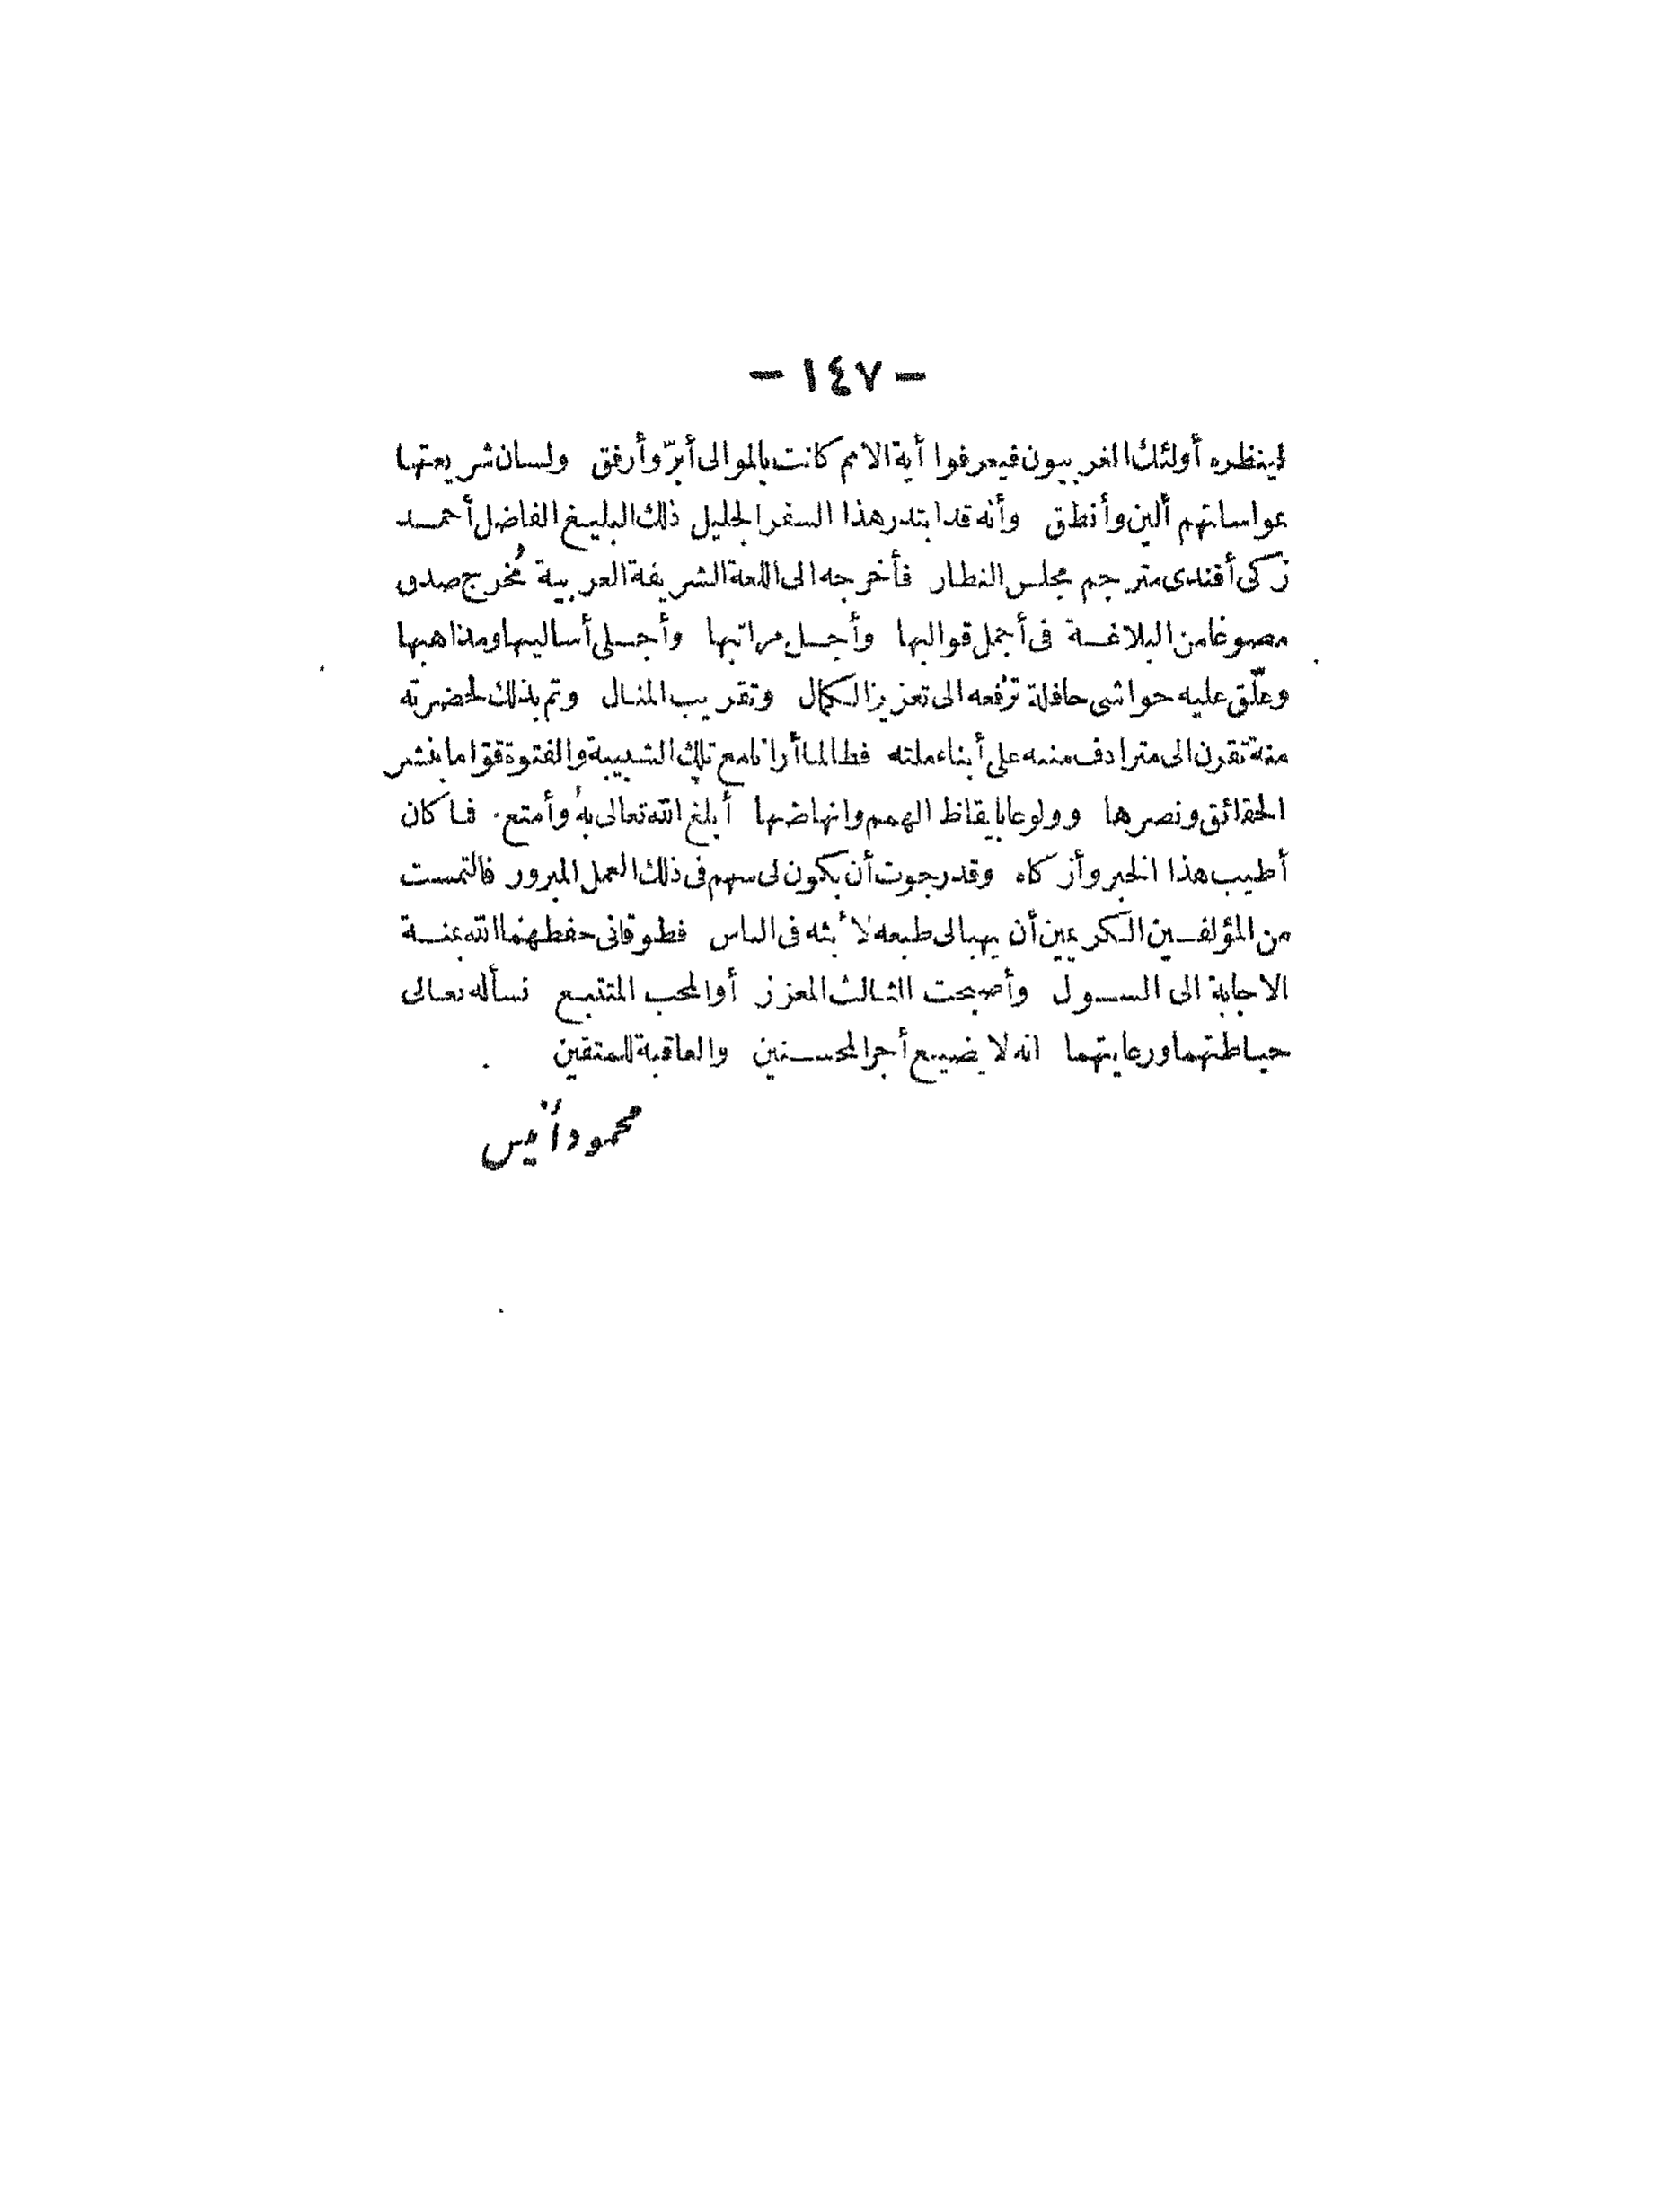 - ١٤٧ -
لينظره أولئك الغربيون فيعرفوا أية الامم كانت بالموالى أبرّ وأرفق ولسان شريعتها
بمواساتهم ألين وأنطق وأنه قد ابتدر هذا السفر الجليل ذلك البليغ الفاضل أحمد
زكى أفندى مترجم مجلس النظار فأخرجه الى اللغة الشريفة العربية مُخرج صدق
مصوغا من البلاغة فى أجمل قوالبها وأجل مراتبها وأجلى أساليبها ومذاهبها
وعلّق عليه حواشى حافلة ترفعه الى تعزيز الكمال وتقريب المنال وتم بذلك لحضرته
منة تقرن الى مترادف مننه على أبناء ملته فطالما أرانا مع تلك الشبيبة والفتوة قوّاما بنشر
الحقائق ونصرها وولوعا بايقاظ الهمم وانهاضها أبلغ الله تعالى به وأمتع فما كان
أطيب هذا الخبر وأزكاه وقد رجوت أن يكون لى سهم فى ذلك العمل المبرور فالتمست
من المؤلفين الكريمين أن يهبا لى طبعه لأبثه فى الناس فطوقانى حفظهما الله بمنة
الاجابة الى السول وأصبحت الثالث المعزز أو المحب المتتبع نسأله تعالى
حياطتهما ورعايتهما انه لا يضيع أجر المحسنين والعاقبة للمتقين
محمود أنيس